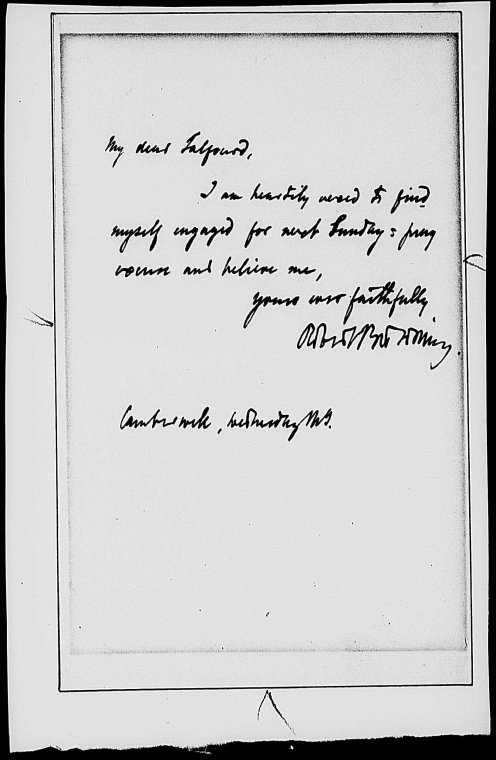 My dear Talfourd,
I am heartily vexed to find
myself engaged for next Sunday: pray
excuse and believe me,
yours ever faithfully,
Robert Browning.
Camberwell, Wednesday Mg.